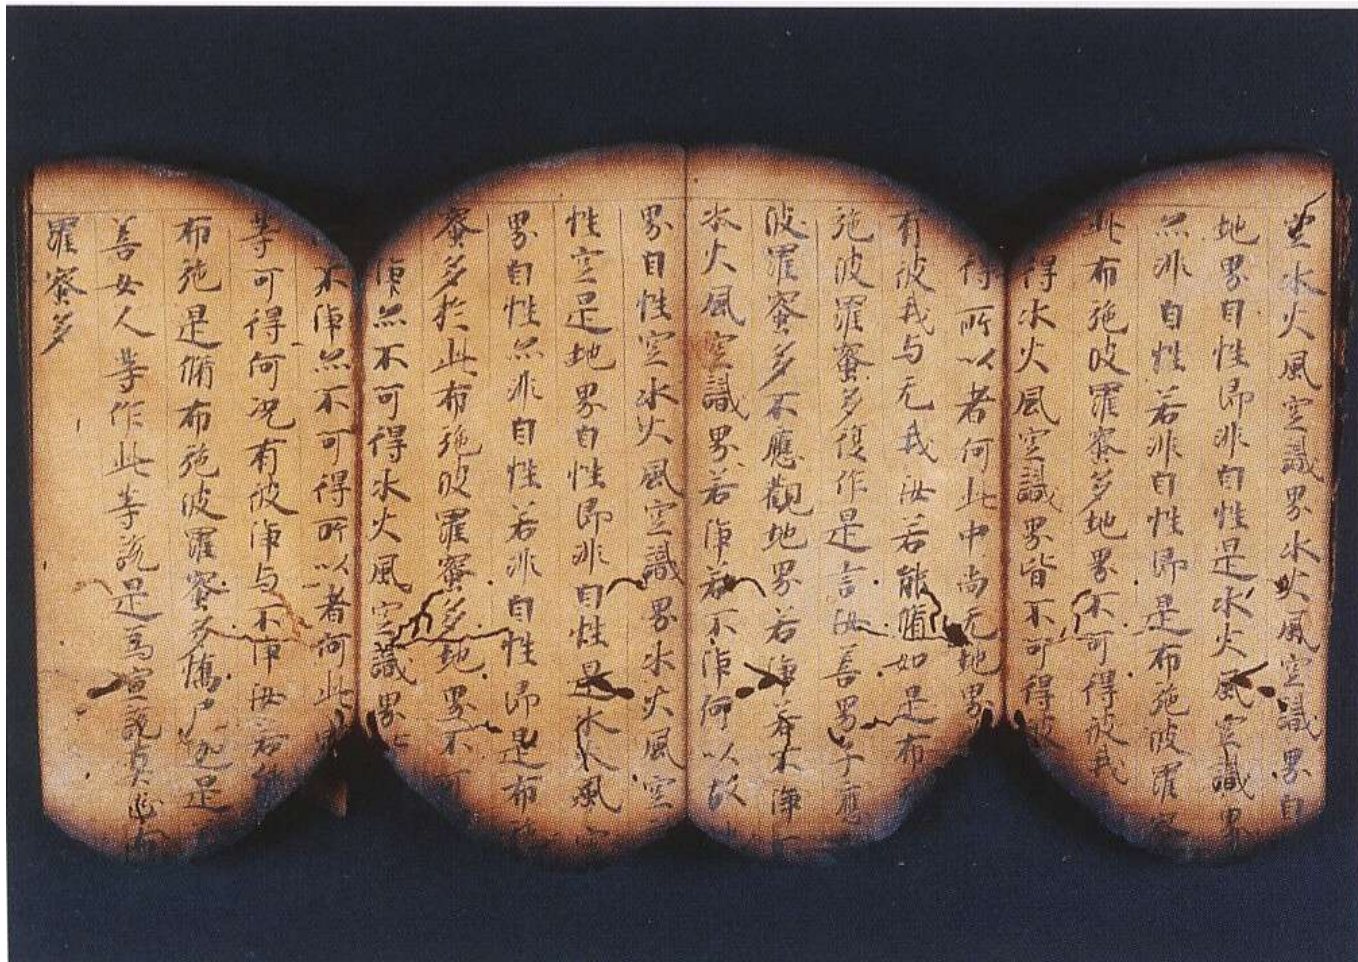 空水火風空識界水火風空識界自
地界自性即非自性是水火風空識界
亦非自性若非自性即是布施波羅蜜
此布施波羅蜜多地界不可得彼我
得水火風空識界皆不可得彼
得所以者何此中尚无地界
有彼我与无我汝若能脩如是布
施波羅蜜多復作是言汝善男子應
波羅蜜多不應觀地界若淨若不淨
水火風空識界若淨若不淨何以故
界自性空水火風空識界水火風空
性空是地界自性即非自性是水火風空
界自性亦非自性若非自性即是布施
蜜多於此布施波羅蜜多地界不可
淨亦不可得水火風空識界
不淨亦不可得所以者何此
等可得何況有彼淨与不淨汝若能
布施是脩布施波羅蜜多憍尸迦是
善女人等作此等說是爲宣說真正
羅蜜多